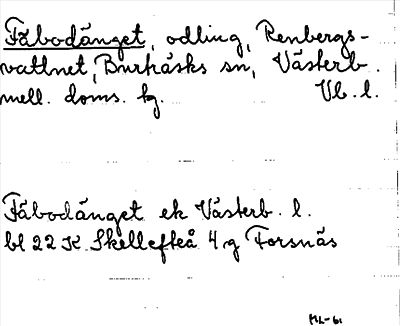 Fäbodänget, odling, Renbergs-
vattnet, Burträsks sn, Västerb.
mell. doms. tg. Vb. l.
Fäbodänget ek Västerb. l.
bl 22 K Skellefteå 4 g Forsnäs